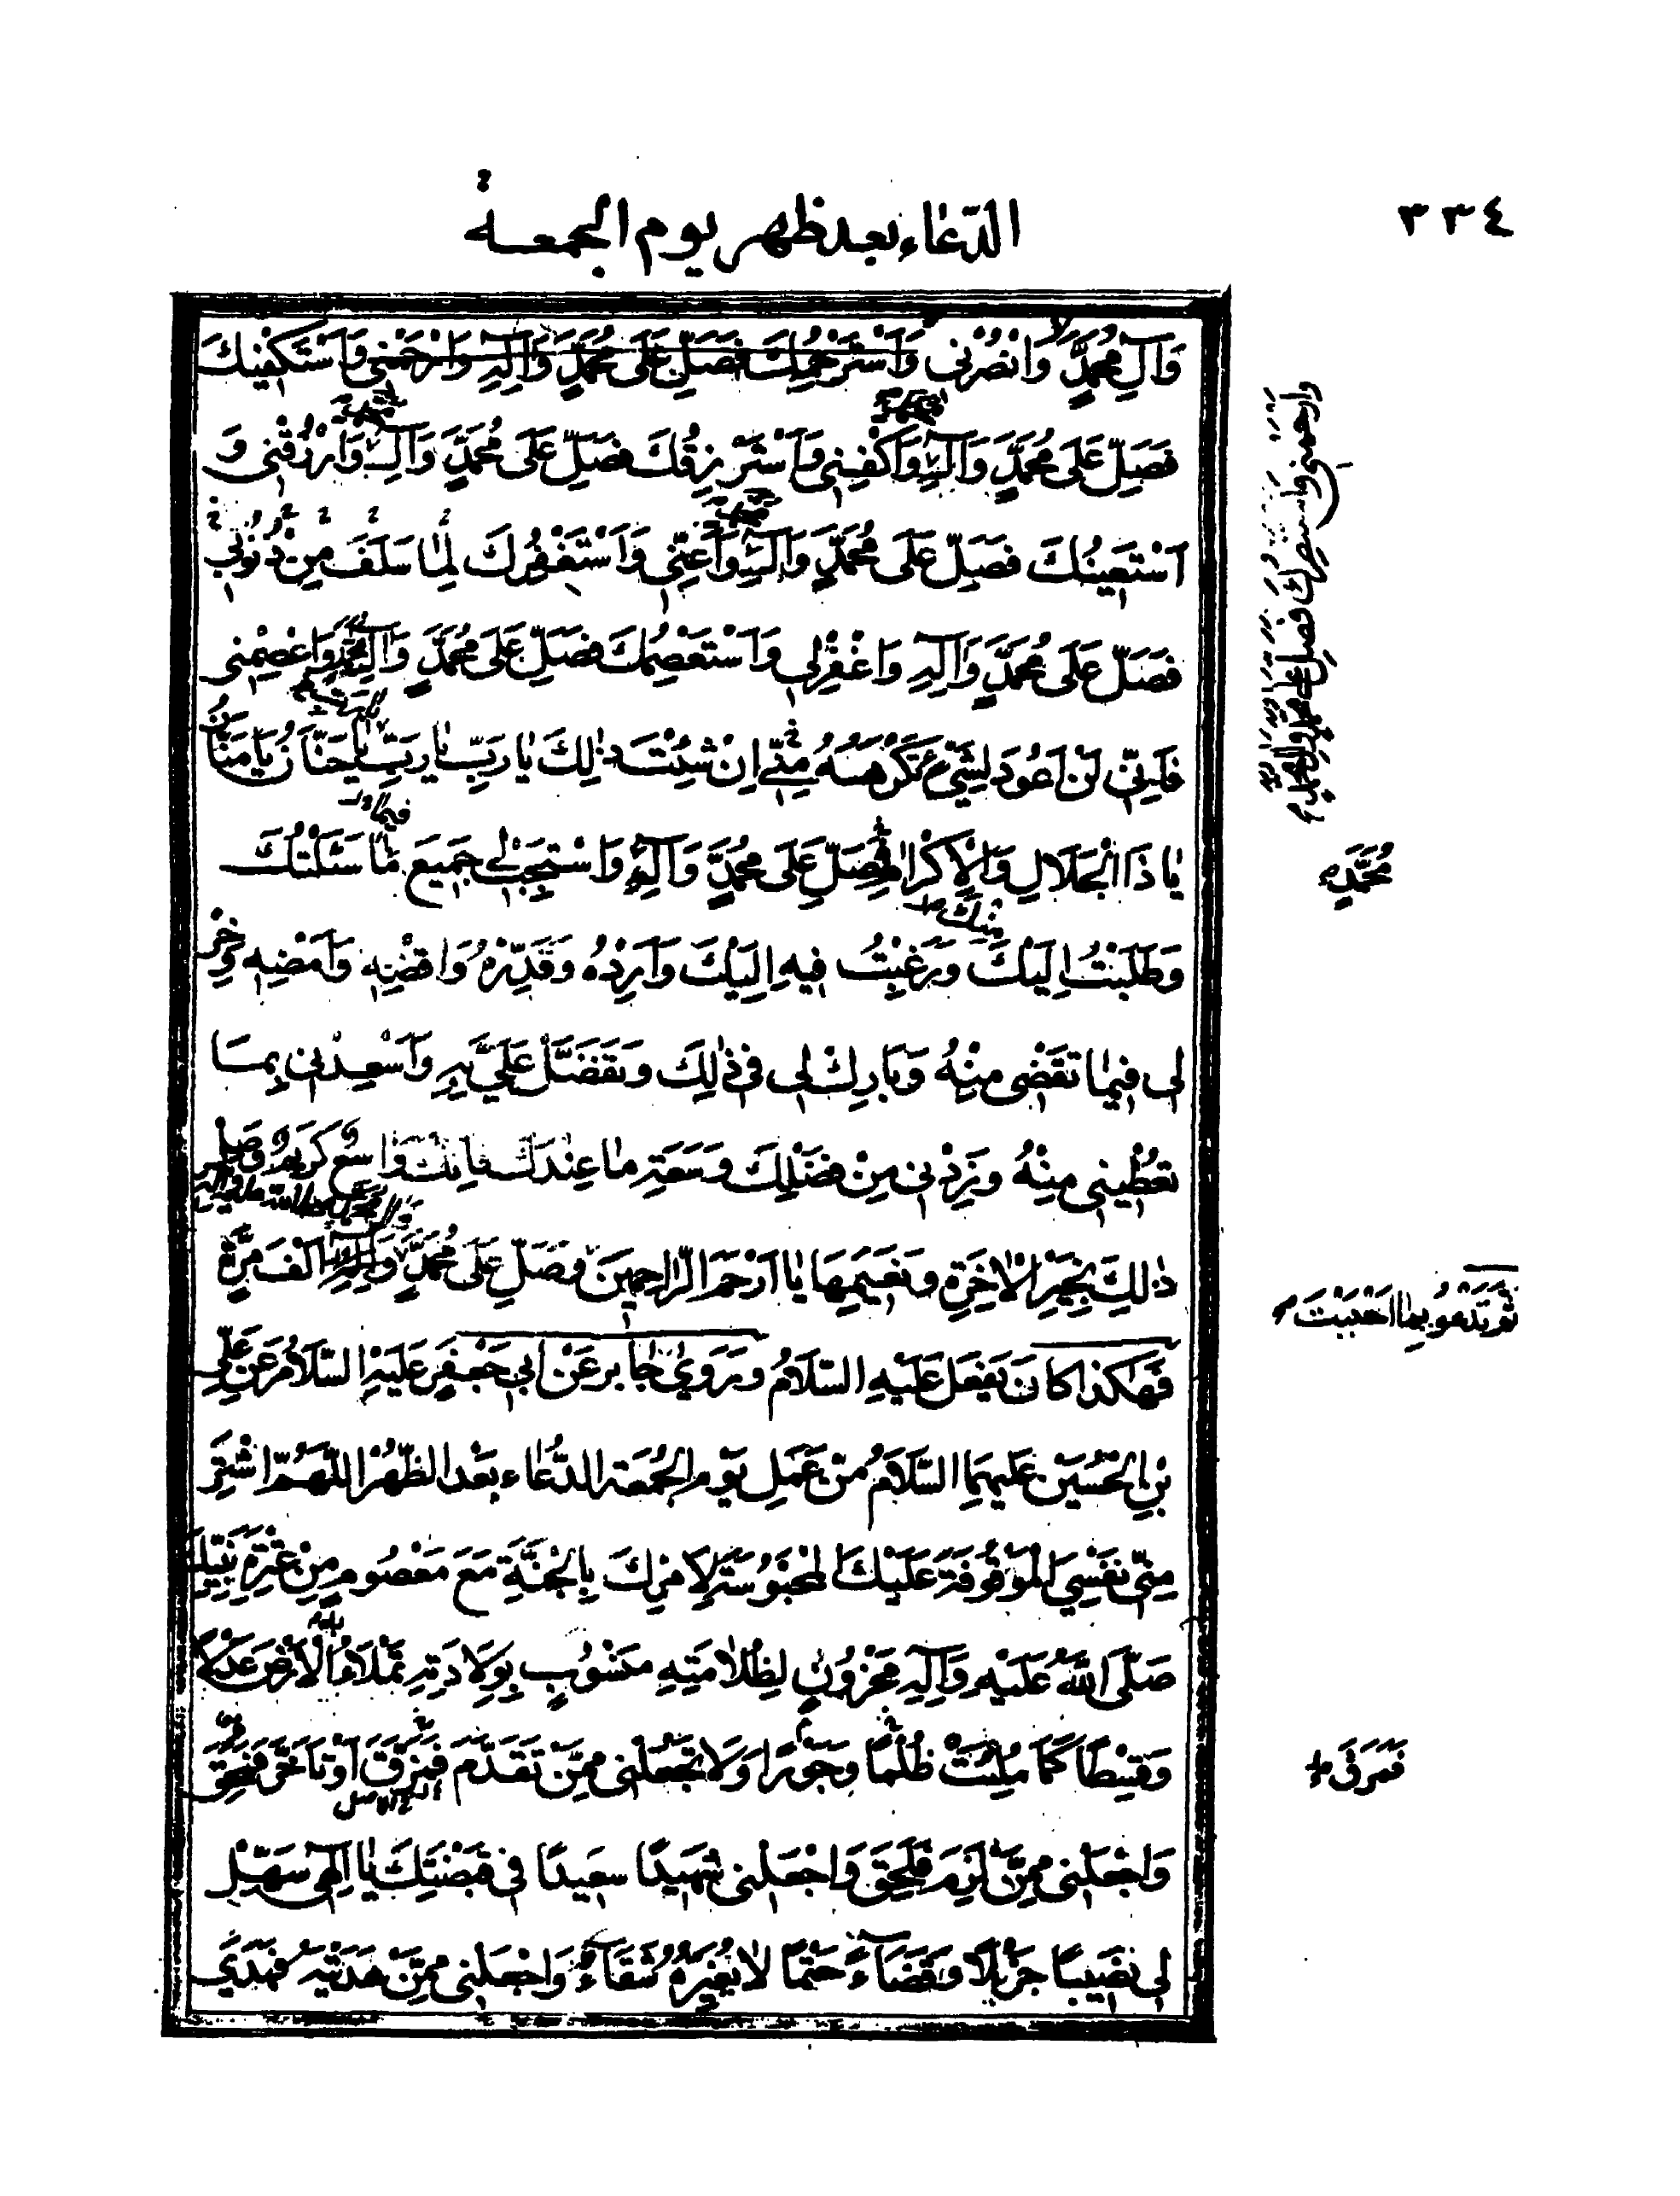 ٣٣٤
الدّعاء بعد ظهر يوم الجمعة
وَآلِ مُحَمَّدٍ وَانْصُرْنى وَاَسْتَرْحِمُكَ فَصَلِّ عَلى مُحَمَّدٍ وَآلِهِ وَارْحَمْنى وَاَسْتَكْفيكَ
فَصَلِّ عَلى مُحَمَّدٍ وَآلِهِ وَاكْفِنى وَاَسْتَرْزِقُكَ فَصَلِّ عَلى مُحَمَّدٍ وَآلِهِ وَارْزُقْنى وَ
اَسْتَعينُكَ فَصَلِّ عَلَى مُحَمَّدٍ وَآلِهِ وَاَعِنّى وَاَسْتَغْفِرُكَ لِمٰا سَلَفَ مِنْ ذُنُوبى
فَصَلِّ عَلَى مُحَمَّدٍ وَآلِهِ وَاغْفِرْلى وَاَسْتَعْصِمُكَ فَصَلِّ عَلَى مُحَمَّدٍ وَآلِ مُحَمَّدٍ وَاعْصِمْنى
فَاِنّى لَنْ اَعُودَ لِشَيْءٍ كَرِهْتَهُ مِنّى اِنْ شِئْتَ ذٰلِكَ يٰا رَبِّ يٰا رَبِّ يٰا حَنّانُ يٰا مَنّانُ
يٰا ذَا الْجَلالِ وَالْاِكْرامِ صَلِّ عَلَى مُحَمَّدٍ وَآلِهِ وَاسْتَجِبْ لى جَميعَ مٰا سَئَلْتُكَ
وَطَلَبْتُ اِلَيْكَ وَرَغِبْتُ فيهِ اِلَيْكَ وَاَرِدْهُ وَقَدِّرْهُ وَاقْضِهِ وَاَمْضِهِ وَخِرْ
لى فيمٰا تَقْضى مِنْهُ وَبارِكْ لى فى ذٰلِكَ وَتَفَضَّلْ عَلَىَّ بِهِ وَاَسْعِدْنى بِمٰا
تُعْطينى مِنْهُ وَزِدْنى مِنْ فَضْلِكَ وَسَعَةِ مٰا عِنْدَكَ فَاِنَّكَ وٰاسِعٌ كَريمٌ وَصِلْ
ذٰلِكَ بِخَيْرِ الْاٰخِرَةِ وَنَعيمِهٰا يٰا اَرْحَمَ الرّاحِمينَ فَصَلِّ عَلى مُحَمَّدٍ وَآلِهِ اَلْفَ مَرَّةٍ
فَهٰكَذا كانَ يَفْعَلُ عَلَيْهِ السَّلامُ وَرَوىٰ جٰابِرٌ عَنْ اَبى جَعْفَرٍ عَلَيْهِ السَّلامُ عَنْ عَلِىِّ
بْنِ الْحُسَيْنِ عَلَيْهِمَا السَّلامُ مِنْ عَمَلِ يَوْمِ الْجُمُعَةِ الدُّعٰاء بَعْدَ الظُّهْرِ اللّهُمَّ اشْتَرِ
مِنّى نَفْسِىَ الْمَوْقُوفَةَ عَلَيْكَ الْمَحْبُوسَةَ لِاَمْرِكَ بِالْجَنَّةِ مَعَ مَعْصُومٍ مِنْ عِتْرَةِ نَبِيِّكَ
صَلَّى اللّهُ عَلَيْهِ وَآلِهِ مَخْزُونٍ لِظُلٰامَتِهِ مَنْسُوبٍ بِوِلادَتِهِ تَمْلَاُ الْاَرْضَ عَدْلاً
وَقِسْطًا كَمٰا مُلِئَتْ ظُلْمًا وَجَوْرًا وَلا تَجْعَلْنى مِمَّنْ تَقَدَّمَ فَمَرَقَ اَوْ تَاَخَّرَ فَمُحِقَ
وَاجْعَلْنى مِمَّنْ لَزِمَ فَلَحِقَ وَاجْعَلْنى شَهيدًا سَعيدًا فى قَبْضَتِكَ يٰا اِلٰهى سَهِّلْ
لى نَصيبًا جَزيلاً وَقَضٰاءً حَتْمًا لا يُغَيِّرُهُ شَقٰاءٌ وَاجْعَلْنى مِمَّنْ هَدَيْتَهُ فَهَدىٰ
وارحمنى واستنصرك فصل على محمد وآل محمد
مُحَمَّدٍ
ثُمَّ تَدْعُو بِمٰا اَحْبَبْتَ
فَمَرَقَ